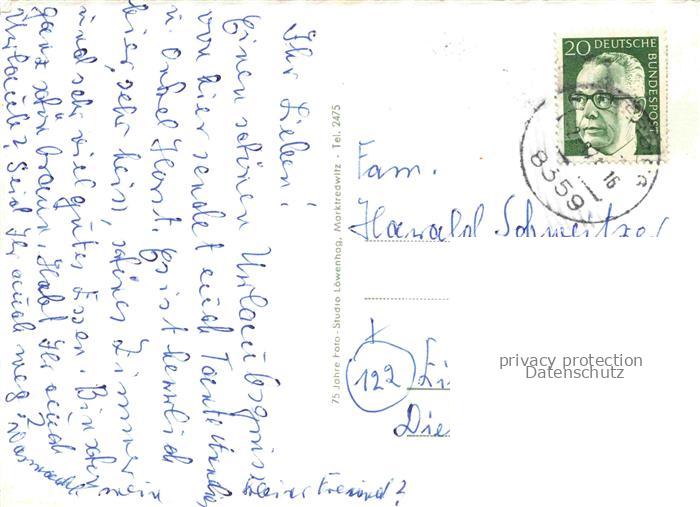 Ihr Lieben!
Einen schönen Urlaubsgruss
von hier sendet euch Tante
u. Onkel Horst. Es ist herrlich
hier, sehr heiss, schönes Zimmer
und sehr viel gutes Essen. Bin schon
ganz schön braun. Habt Ihr auch
Urlaub? Seid Ihr auch weg?
mein
kleiner Freund?
75 Jahre Foto-Studio Löwenhag, Marktredwitz - Tel. 2475
20 DEUTSCHE
BUNDESPOST
8359
16
Fam.
Harald Schweitzer
122
Die
privacy protection
Datenschutz